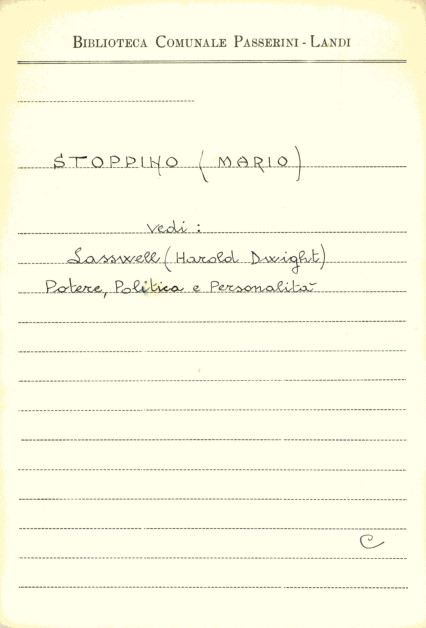 BIBLIOTECA COMUNALE PASSERINI - LANDI
STOPPINO (MARIO)
vedi :
Lasswell (Harold Dwight)
Potere, Politica e Personalità
C